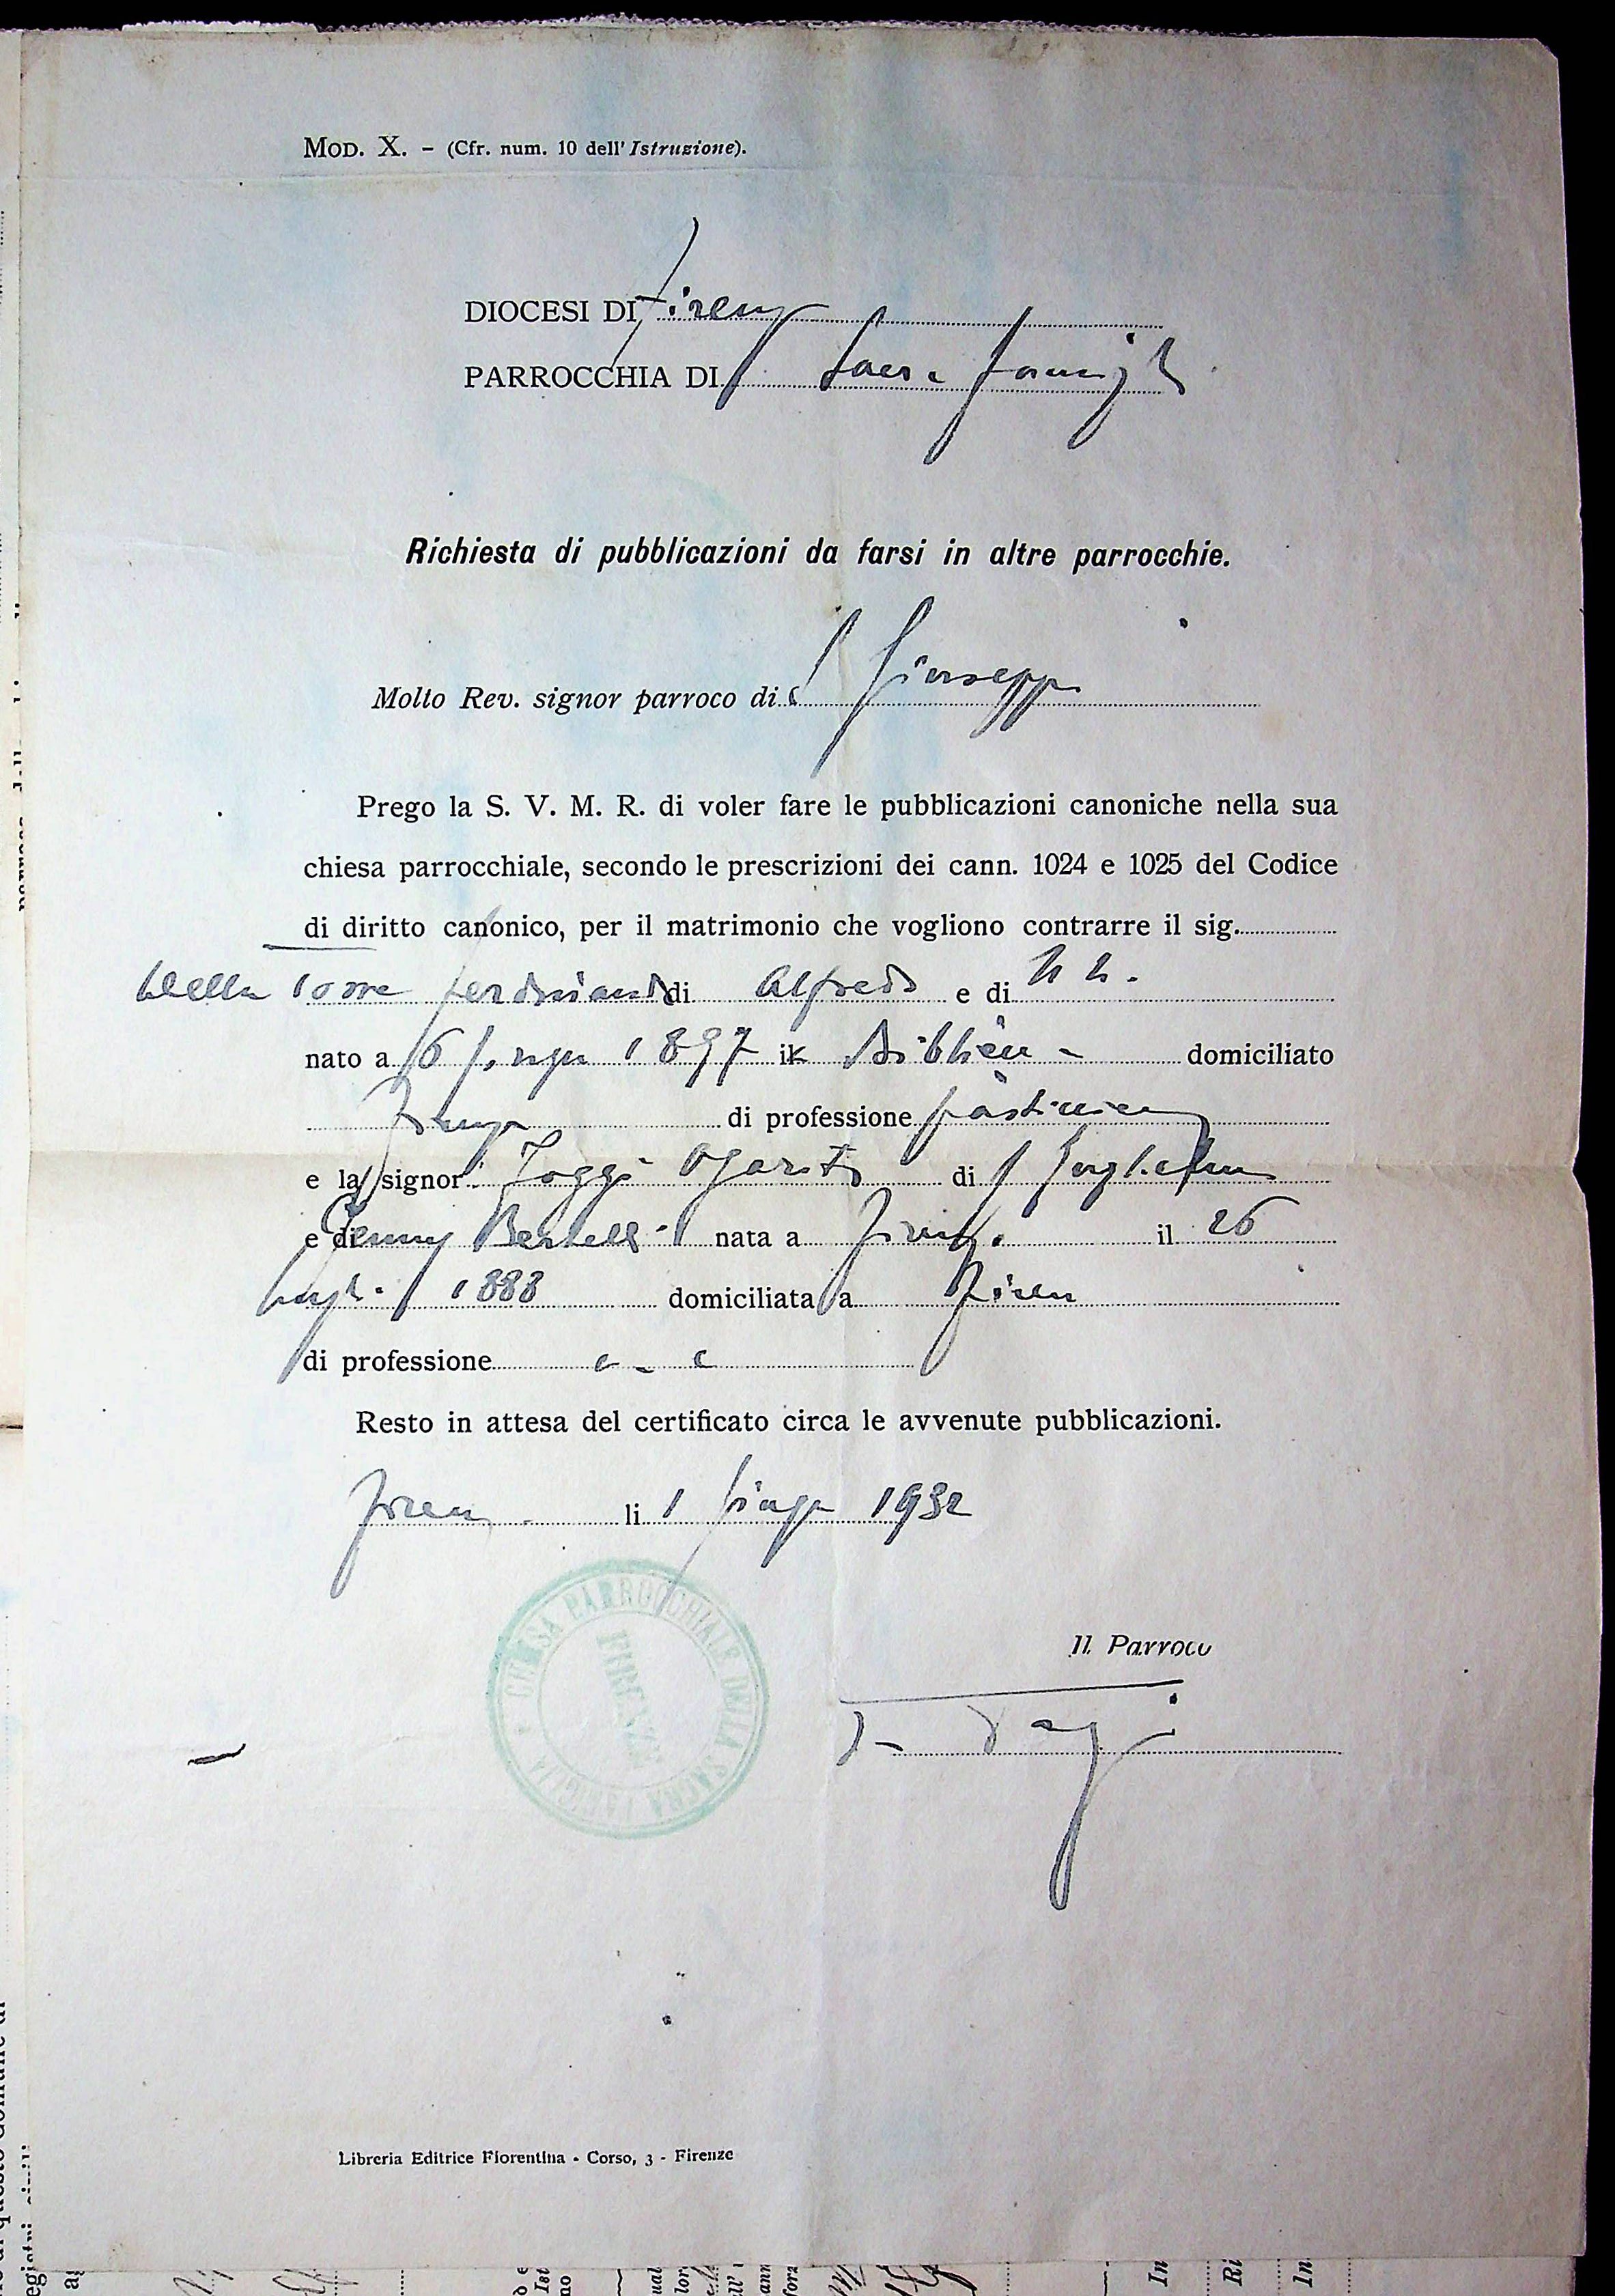 MOD. X. - (Cfr. num. 10 dell' Istruzione).
DIOCESI DI Firenze
PARROCCHIA DI Sacra Famiglia
Richiesta di pubblicazioni da farsi in altre parrocchie.
Molto Rev. signor parroco di S Giuseppe
Prego la S. V. M. R. di voler fare le pubblicazioni canoniche nella sua
chiesa parrocchiale, secondo le prescrizioni dei cann. 1024 e 1025 del Codice
di diritto canonico, per il matrimonio che vogliono contrarre il sig.
Della Torre Ferdinando di Alfredo e di N N.
nato a 6 1897 domiciliato
di professione
e la signor Poggi di
e di Bertelli nata a Firenze il 26
1888 domiciliata a Firenze
di professione a. c
Resto in attesa del certificato circa le avvenute pubblicazioni.
Firenze li 1 giugno 1932
CHIESA PARROCCHIALE DELLA SACRA FAMIGLIA
FIRENZE
Il Parroco
Libreria Editrice Fiorentina - Corso, 3 - Firenze